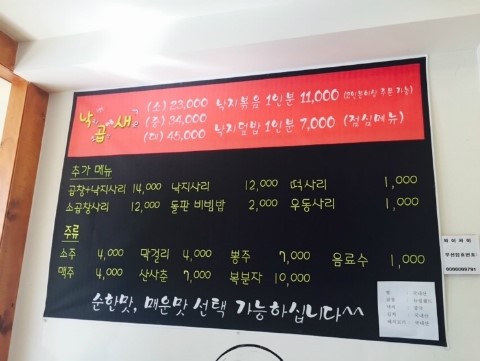 낙곱새 (소) 23,000 낙지볶음 1인분 11,000 (2인분이상 주문 가능)
(중) 34,000
(대) 45,000 낙지덮밥 1인분 7,000 (점심메뉴)
추가 메뉴
곱창+낙지사리 14,000 낙지사리 12,000 떡사리 1,000
소곱창사리 12,000 돌판 비빔밥 2,000 우동사리 1,000
주류
소주 4,000 막걸리 4,000 뽕주 7,000 음료수 1,000
맥주 4,000 산사춘 7,000 복분자 10,000
순한맛, 매운맛 선택 가능하십니다^^
와이파이
무선암호번호: